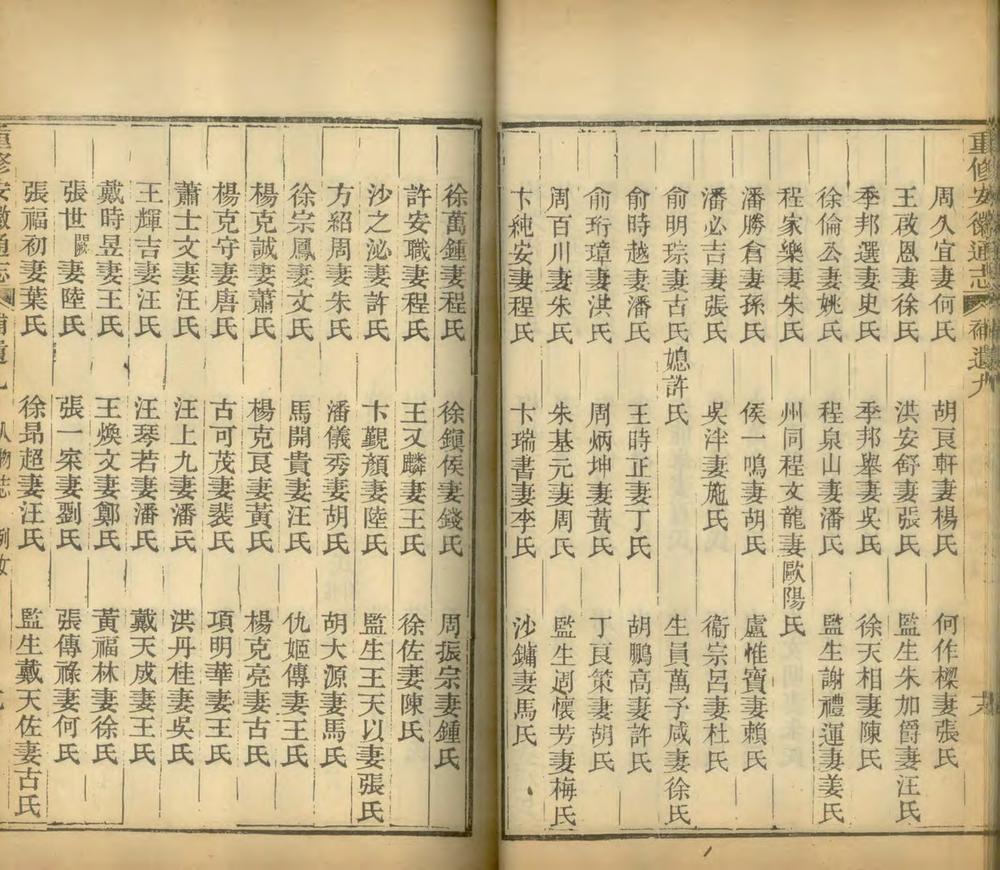 重修安徽通志 補遺九
周久宜妻何氏 胡良軒妻楊氏 何作樑妻張氏
王啟恩妻徐氏 洪安舒妻張氏 監生朱加爵妻汪氏
季邦選妻史氏 季邦舉妻吳氏 徐天相妻陳氏
徐倫公妻姚氏 程泉山妻潘氏 監生謝禮運妻姜氏
程家樂妻朱氏 州同程文龍妻歐陽氏
潘勝倉妻孫氏 侯一鳴妻胡氏 盧惟寶妻賴氏
潘必吉妻張氏 吳泮妻施氏 衞宗呂妻杜氏
俞明琮妻古氏媳許氏 生員萬予咸妻徐氏
俞時越妻潘氏 王時正妻丁氏 胡鵬高妻許氏
俞珩璋妻洪氏 周炳坤妻黃氏 丁良策妻胡氏
周百川妻朱氏 朱基元妻周氏 監生週懷芳妻梅氏
卞純安妻程氏 卞瑞書妻李氏 沙鏞妻馬氏
徐萬鍾妻程氏 徐鎭侯妻錢氏 周振宗妻鍾氏
許安職妻程氏 王又麟妻王氏 徐佐妻陳氏
沙之泌妻許氏 卞覲顏妻陸氏 監生王天以妻張氏
方紹周妻朱氏 潘儀秀妻胡氏 胡大源妻馬氏
徐宗鳳妻文氏 馬開貴妻汪氏 仇姬傳妻王氏
楊克誠妻蕭氏 楊克良妻黃氏 楊克亮妻古氏
楊克守妻唐氏 古可茂妻裴氏 項明華妻王氏
蕭士文妻汪氏 汪上九妻潘氏 洪丹桂妻吳氏
王輝吉妻汪氏 汪琴若妻潘氏 戴天成妻王氏
戴時昱妻王氏 王煥文妻鄭氏 黃福林妻徐氏
張世闕妻陸氏 張一宋妻劉氏 張傳祿妻何氏
張福初妻葉氏 徐昻超妻汪氏 監生戴天佐妻古氏
重修安徽通志 補遺 人物志 列女